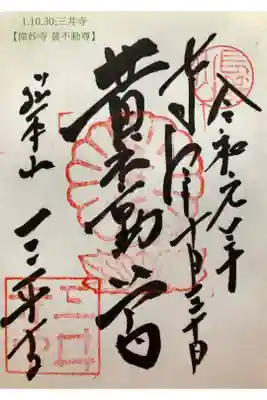 1.10.30;三井寺
【微妙寺 黄不動尊】
令和元年
十月三十日
奉拝
黄不動尊
長等山
三井寺